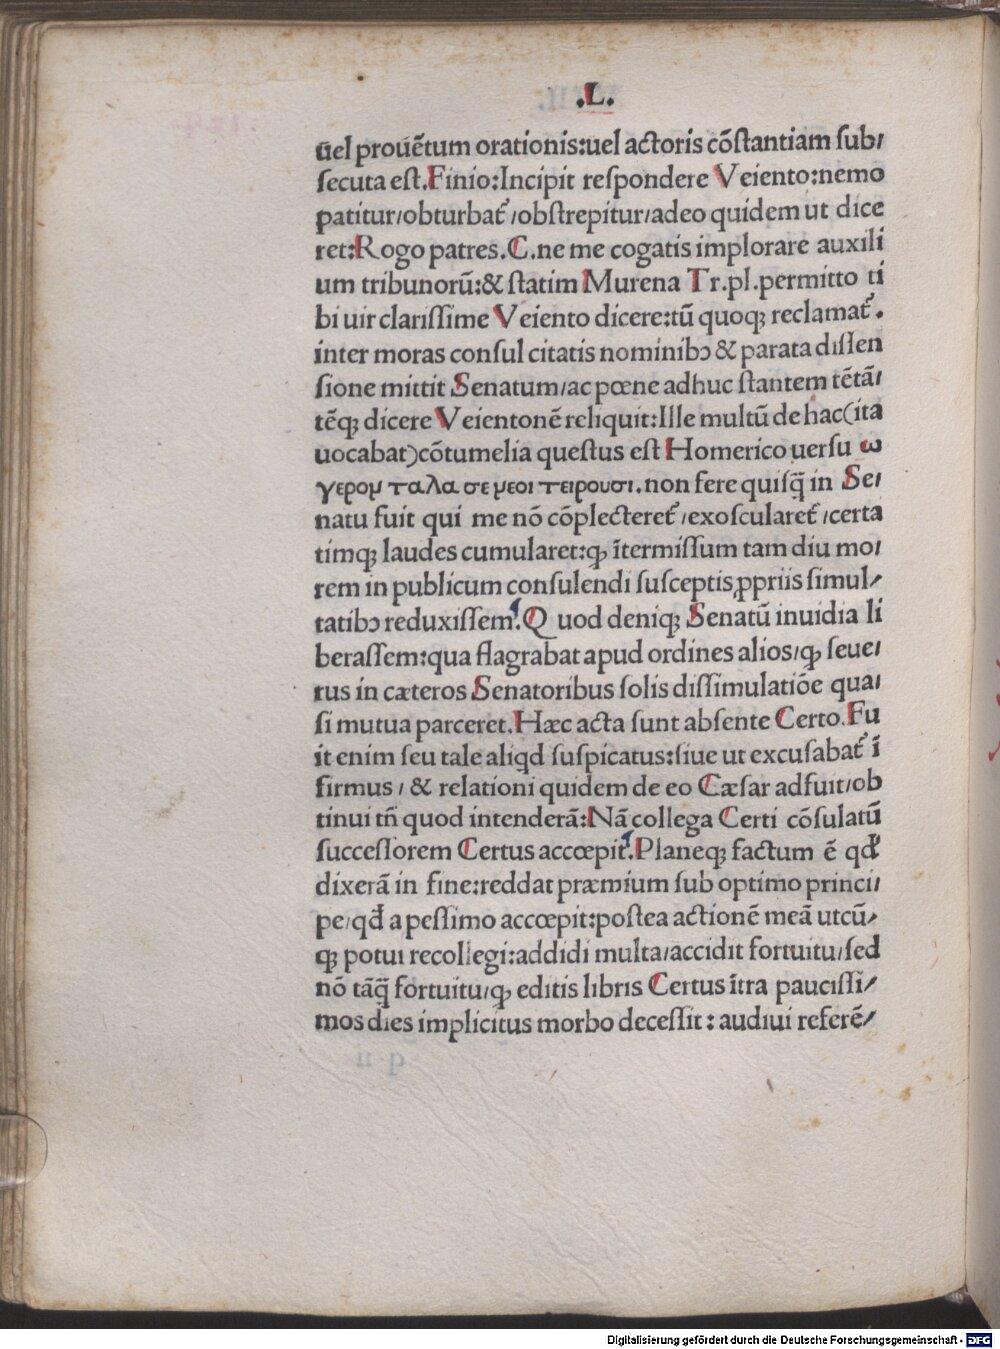 .L.
ūel prouētum orationis:uel actoris cōstantiam sub/
secuta est.Finio:Incipit respondere Veiento:nemo
patitur/obturbat᷑/obstrepitur/adeo quidem ut dice
ret:Rogo patres.C.ne me cogatis implorare auxili
um tribunorū:& statim Murena Tr.pl.permitto ti
bi uir clarissime Veiento dicere:tū quoqꝫ reclamat᷑.
inter moras consul citatis nominibɔ & parata dissen
sione mittit Senatum/ac pœne adhuc stantem tētā/
tēqꝫ dicere Veientonē reliquit:Ille multū de hac(ita
uocabat)cōtumelia questus est Homerico uersu ω
γερομ ταλα σε μεοι τειρουσι.non fere quisq̄ in Se/
natu fuit qui me nō cōplecteret᷑/exoscularet᷑/certa
timqꝫ laudes cumularet:ꝙ ītermissum tam diu mo/
rem in publicum consulendi susceptis ꝓpriis simul/
tatibɔ reduxissem.Quod deniqꝫ Senatū inuidia li
berassem:qua flagrabat apud ordines alios/ꝙ seue/
rus in cæteros Senatoribus solis dissimulatiōe qua/
si mutua parceret.Hæc acta sunt absente Certo.Fu
it enim seu tale aliqd suspicatus:siue ut excusabat᷑ ī
firmus/& relationi quidem de eo Cæsar adfuit/ob
tinui tn̄ quod intenderā:Nā collega Certi cōsulatū
successorem Certus accœpit.Planeqꝫ factum ē qđ
dixerā in fine:reddat præmium sub optimo princi/
pe/qđ a pessimo accœpit:postea actionē meā utcū/
qꝫ potui recollegi:addidi multa/accidit fortuitu/sed
nō tāq̄ fortuitu/ꝙ editis libris Certus ītra paucissi/
mos dies implicitus morbo decessit:audiui referē/
Digitalisierung gefördert durch die Deutsche Forschungsgemeinschaft - DFG